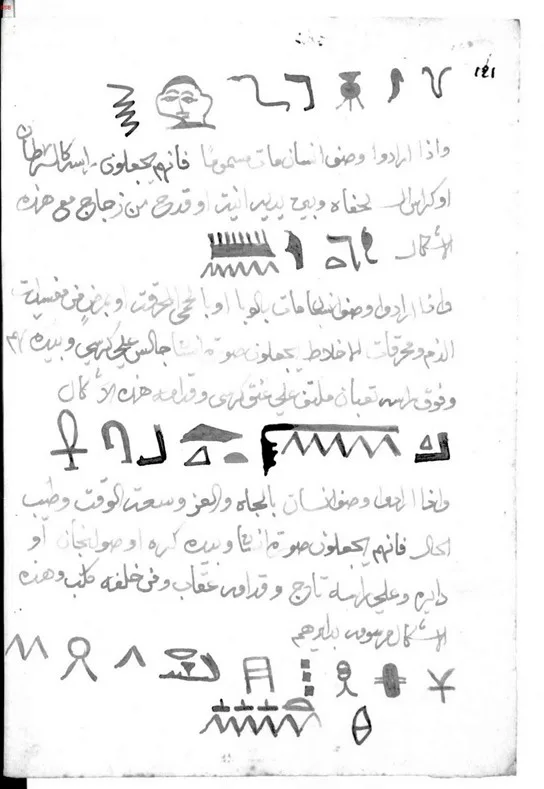 واذا ارادوا وصف انسان مات مسموما فانهم يجعلون راسه كالسرطان
وبين يديه انية او قدح من زجاج مع هذه
الاشكال
واذا ارادوا وصف انسان مات بالوبا او بالحمى المحرقة او بمرض من مفسدات
الدم ومحرقات الاخلاط يجعلون صورة انسان جالس علي كرسي وبيده
وفوق راسه ثعبان ملتف علي وقدامه هذه الاشكال
واذا ارادوا وصف انسان بالجاه والعز وسعة الوقت وطيب
الحال فانهم يجعلون صورة انسان وبيده كره او صولجان او
دايره وعلي راسه تاج وقدامه عقاب ومن خلفه كلب وهذه
الاشكال مرسومه بدايرهم